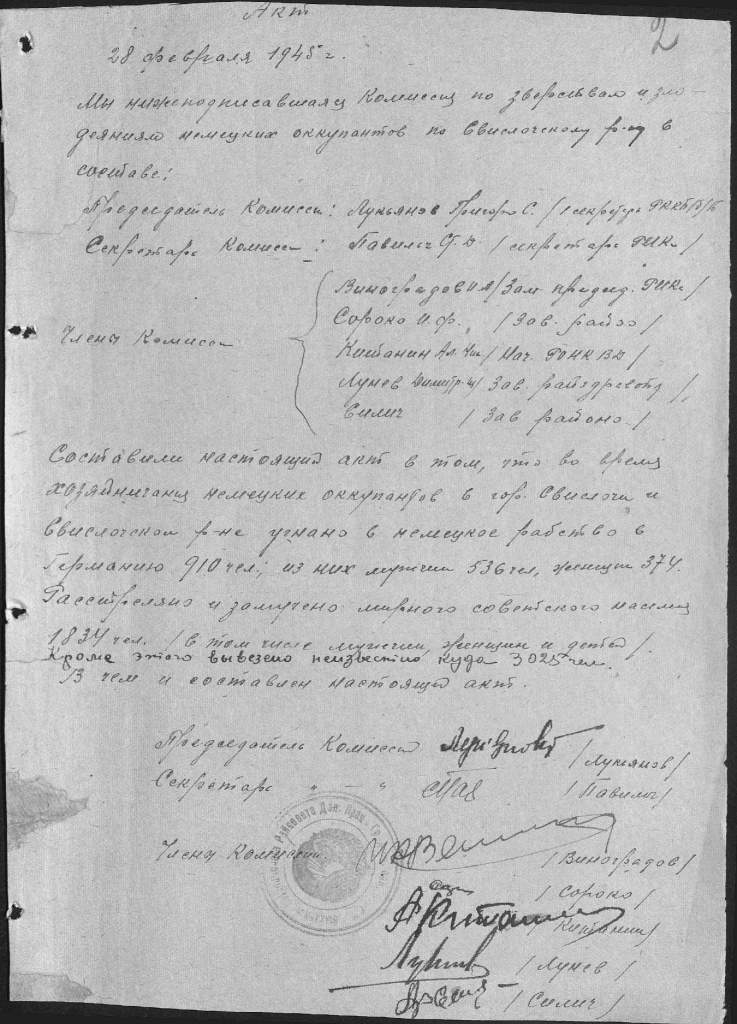 Акт
2
28 февраля 1945 г.
Мы нижеподписавшаяся Комиссия по зверствам и зло-
деяниям немецких оккупантов по Свислочскому р-ну в
составе:
Председатель Комиссии: Лукьянов Григор С. /секретарь РККП/б/Б
Секретарь Комисси: Павильч С. Д. /секретарь РИКа/
Виноградов И А /Зам. председ. РИКа/
Сороко И. Ф. / Зав. райзо /
Члены Комиссии
Китанин Ал. Ник /Нач. РОНКВД/
Лунев Димитр. /Зав. райздравотд/
Силич / Зав районо /
Составили настоящий акт в том, что во время
хозяйничания немецких оккупантов в гор. Свислочи и
Свислочском р-не угнано в немецкое рабство в
Германию 910 чел; из них мужчин 536 чел, женщин 374.
Расстреляно и замучено мирного советского населния
1834 чел. /в том числе мужчин, женщин и детей/.
Кроме этого вывезено неизвестно куда 3025 чел.
В чем и составлен настоящий акт.
Председатель Комиссии /Лукьянов/
Секретарь " — " /Павильч/
Члены Комиссии. /Виноградов/
/Сороко/
Китанин /Китанин/
Лунев /Лунев/
/Силич/